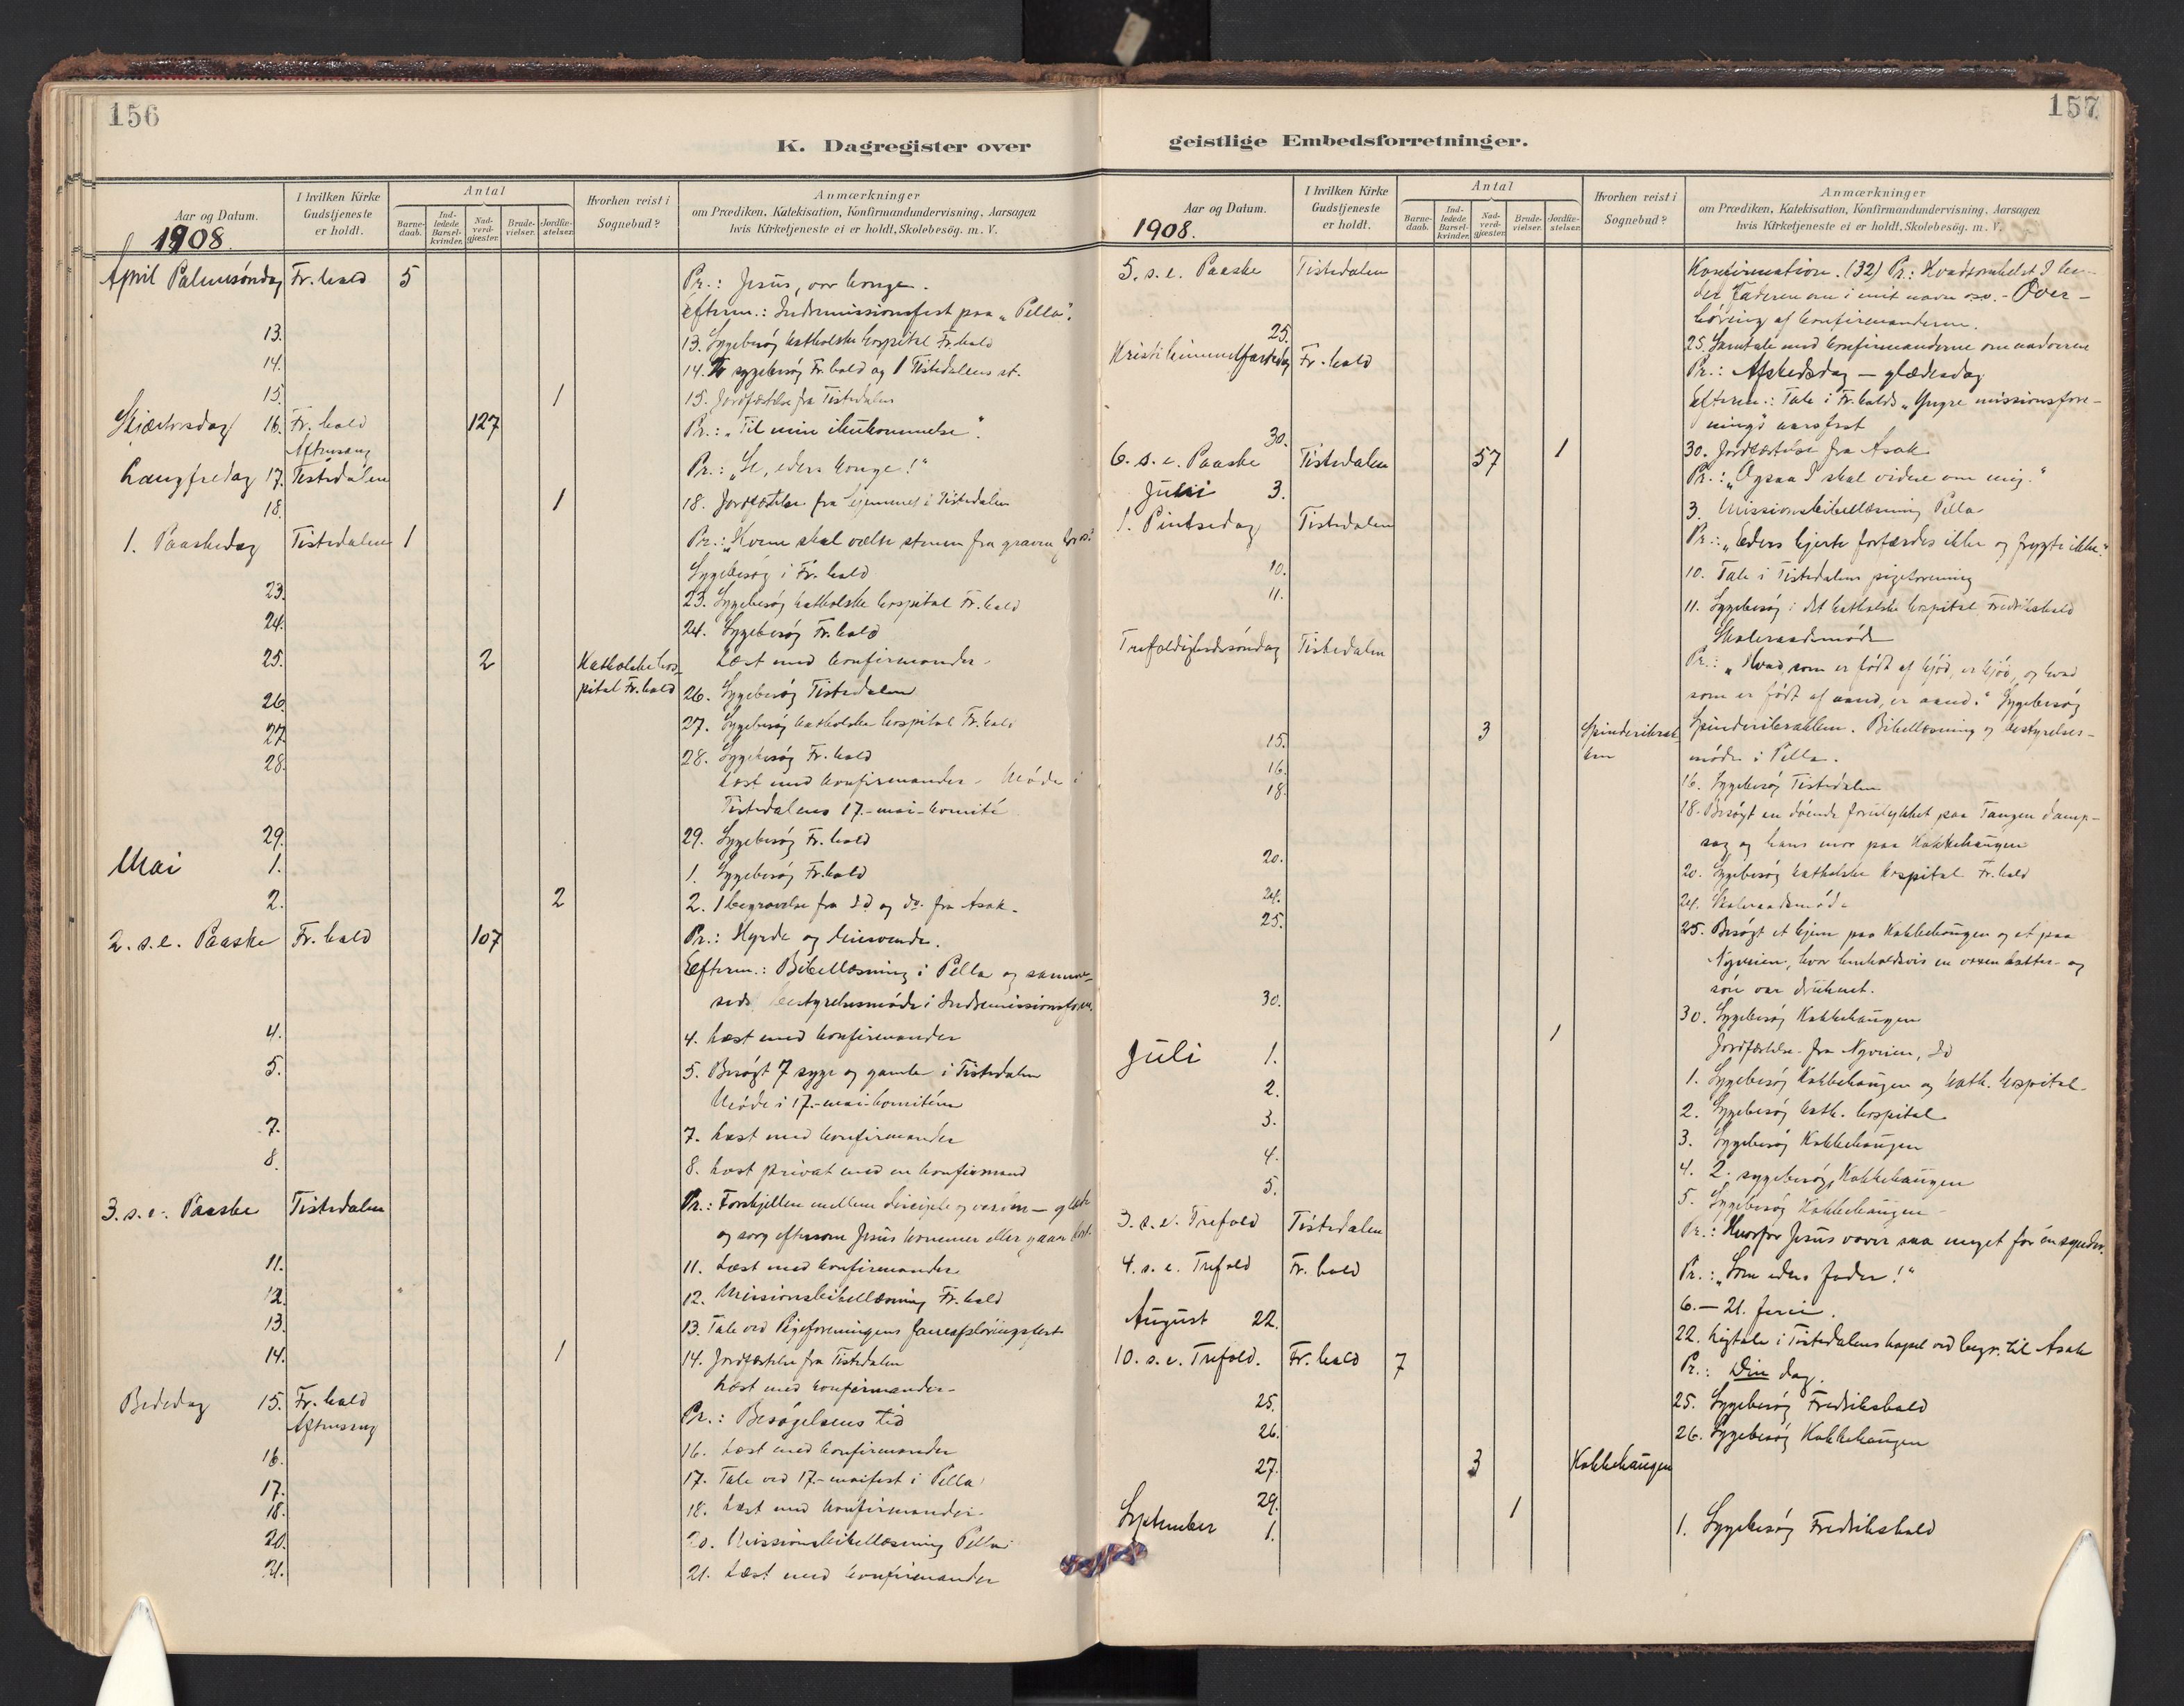 156
K. Dagregister over
Aar og Datum.
1908.
I hvilken Kirke
Gudstjeneste
er holdt.
Antal
Barne-
daab.
Ind-
ledede
Barsel-
kvinder.
Nad-
verd-
gjæster.
Brude-
vielser.
Jordfæ-
stelser.
Hvorhen reist i
Sognebud?
Anmærkninger
om Prædiken, Katekisation, Konfirmandundervisning, Aarsagen
hvis Kirketjeneste ei er holdt, Skolebesög. m. V.
April Palmesöndag Fr.hald 5 Pr.: Jesus, vor konge.
Efterm.: Indremissionsfest paa "Pella".
13. 13. Sygebesög katholske hospital Fr.hald
14. 14. sygebesög Fr.hald og 1 Tistedalens st.
15. 1 15. Jordfæstelse fra Tistedalen
Skjærtorsdag 16. Fr.hald 127 Pr.: "Til min ihukommelse".
Aftensang
Langfredag 17. Tistedalen Pr.: "Se, eders konge!"
18. 1 18. Jordfæstelse fra hjemmet i Tistedalen
1. Paaskedag Tistedalen 1 Pr.: "Hvem skal vælte stenen fra graven for os?
Sygebesög i Fr.hald
23. 23. Sygebesög katholske hospital Fr.hald
24. 24. Sygebesög Fr.hald
25. 2 Katholske hos- Læst med konfirmander.
pital Fr.hald
26. 26. Sygebesög Tistedalen
27. 27. Sygebesög katholske hospital Fr.hald
28. 28. Sygebesög Fr.hald
Læst med konfirmander - Möde i
Tistedalens 17.-mai-komité
29. 29. Sygebesög Fr.hald
Mai 1. 1. Sygebesög Fr.hald
2. 2 2. 1 begravelse fra Id og do. fra Asak.
2. s.e. Paaske Fr.hald 107 Pr.: Hyrde og leiesvende.
Efterm.: Bibellæsning i Pella og samme-
steds bestyrelsesmöde i Indremissionsforen.
4. 4. Læst med konfirmander
5. 5. Besögt 7 syge og gamle i Tistedalen
Möde i 17.-mai-komitéen
7. 7. Læst med konfirmander
8. 8. Læst privat med en konfirmand
3. s.e. Paaske Tistedalen Pr.: Forskjellen mellem disciple og verden - glæde
og sorg eftersom Jesus kommer eller gaar bort.
11. 11. Læst med konfirmander
12. 12. Missionsbibellæsning Fr.hald
13. 13. Tale ved Pigeforeningens fest
14. 1 14. Jordfæstelse fra Tistedalen
Læst med konfirmander.
Bededag 15. Fr.hald Pr.: Besögelsens tid
Aftensang
16. 16. Læst med konfirmander
17. 17. Tale ved 17.-maifest i Pella
18. 18. Læst med konfirmander.
20. 20. Missionsbibellæsning Pella
21. 21. Læst med konfirmander
157
geistlige Embedsforretninger.
Aar og Datum.
1908.
I hvilken Kirke
Gudstjeneste
er holdt.
Antal
Barne-
daab.
Ind-
ledede
Barsel-
kvinder.
Nad-
verd-
gjæster.
Brude-
vielser.
Jordfæ-
stelser.
Hvorhen reist i
Sognebud?
Anmærkninger
om Prædiken, Katekisation, Konfirmandundervisning, Aarsagen
hvis Kirketjeneste ei er holdt, Skolebesög. m. V.
5. s.e. Paaske Tistedalen Konfirmation. (32) Pr.: Hvadsomhelst I be-
der Faderen om i mit navn osv. - Over-
höring af konfirmanderne.
25. 25. Samtale med konfirmanderne om nadveren
Kristi himmelfartsdag Fr.hald Pr.: Afskedsdag - glædesdag
Efterm.: Tale i Fr.halds "Yngre missionsfore-
nings" aarsfest
30. 1 30. Jordfæstelse fra Asak
6. s.e. Paaske Tistedalen 57 Pr.: "Ogsaa I skal vidne om mig."
Juni 3. 3. Missionsbibellæsning Pella
1. Pintsedag Tistedalen Pr.: "Eders hjerte forfærdes ikke og frygte ikke."
10. 10. Tale i Tistedalens pigeforening
11. 11. Sygebesög i det katholske hospital Fredrikshald
Skoleraadsmöde
Trefoldighedssöndag Tistedalen Pr.: "Hvad som er födt af kjöd, er kjöd, og hvad
som er födt af aand, er aand." Sygebesög
15. 3 Spinderibrak- Spinderibrakken. Bibellæsning og bestyrelses-
ken möde i Pella.
16. 16. Sygebesög Tistedalen
18. 18. Besögt en döende forulykket paa Tangen damp-
sag og hans mor paa Kakkehaugen
20. 20. Sygebesög katholske hospital Fr.hald
24. 24. Skoleraadsmöde
25. 25. Besögt et hjem paa Kakkehaugen og et paa
Nyveien, hvor henholdsvis en voxen datter- og
sön var druknet.
30. 30. Sygebesög Kakkehaugen
1 Jordfæstelse fra Nyveien, Id
Juli 1. 1. Sygebesög Kakkehaugen og kath. hospital
2. 2. Sygebesög kath. hospital
3. 3. Sygebesög Kakkehaugen
4. 4. 2 sygebesög, Kakkehaugen
5. 5. Sygebesög Kakkehaugen
3. s.e. Trefold Tistedalen Pr.: Hvorfor Jesus vover saa meget for en synder.
4. s.e. Trefold Fr.hald Pr.: "Som eders Fader!"
6. - 21. ferie.
August 22. 22. Ligtale i Tistedalens kapel ved begr. til Asak
10. s.e. Trefold. Fr.hald 7 Pr.: Din dag.
25. 25. Sygebesög Fredrikshald
26. 26. Sygebesög Kakkehaugen
27. 3 Kakkehaugen
29. 1
September 1. 1. Sygebesög Fredrikshald